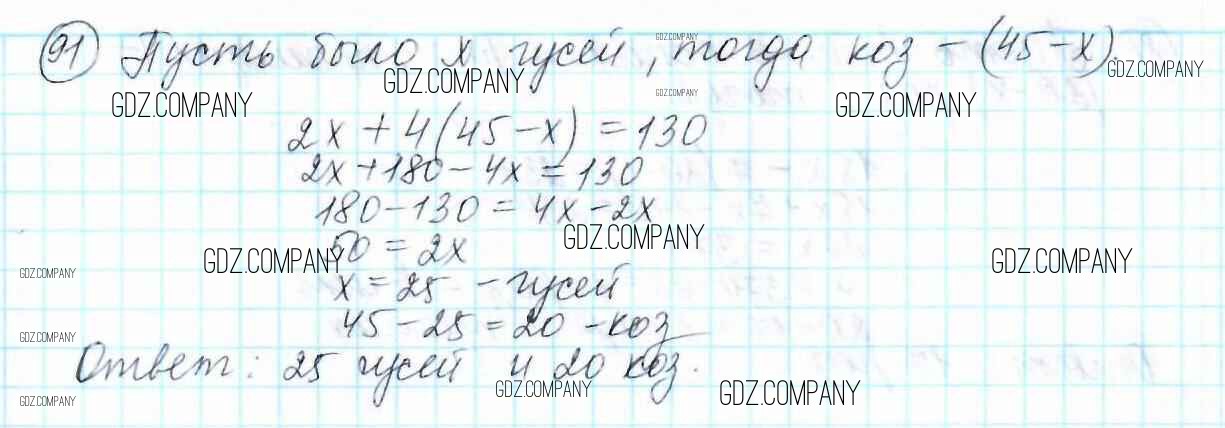 91 Пусть было x гусей, тогда коз – (45 – x).
2x + 4(45 – x) = 130
2x + 180 – 4x = 130
180 – 130 = 4x – 2x
50 = 2x
x = 25 – гусей
45 – 25 = 20 – коз
Ответ: 25 гусей и 20 коз.
GDZ.COMPANY
GDZ.COMPANY
GDZ.COMPANY
GDZ.COMPANY
GDZ.COMPANY
GDZ.COMPANY
GDZ.COMPANY
GDZ.COMPANY
GDZ.COMPANY
GDZ.COMPANY
GDZ.COMPANY
GDZ.COMPANY
GDZ.COMPANY
GDZ.COMPANY